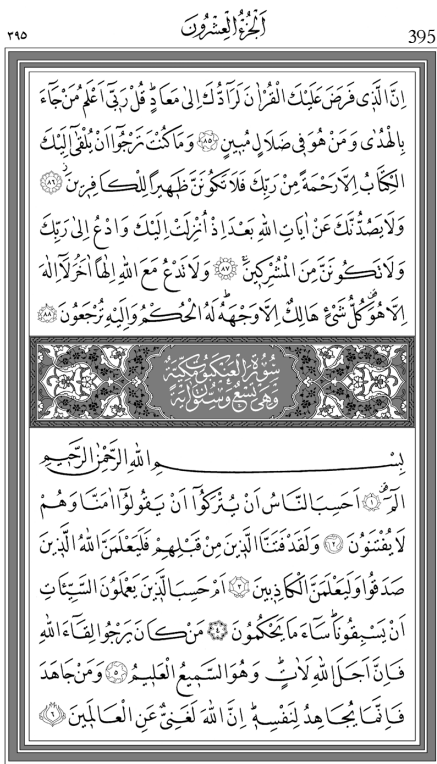 اَلْجُزْءُ الْعِشْرُونَ
٣٩٥
395
اِنَّ الَّذ۪ى فَرَضَ عَلَيْكَ الْقُرْاٰنَ لَرَآدُّكَ اِلٰى مَعَادٍۜ قُلْ رَبّ۪ٓى اَعْلَمُ مَنْ جَٓاءَ
بِالْهُدٰى وَمَنْ هُوَ ف۪ى ضَلَالٍ مُب۪ينٍ ﴿٨٥﴾ وَمَا كُنْتَ تَرْجُٓوا اَنْ يُلْقٰٓى اِلَيْكَ
الْكِتَابُ اِلَّا رَحْمَةً مِنْ رَبِّكَ فَلَا تَكُونَنَّ ظَه۪يراً لِلْكَافِر۪ينَۘ ﴿٨٦﴾
وَلَا يَصُدُّنَّكَ عَنْ اٰيَاتِ اللّٰهِ بَعْدَ اِذْ اُنْزِلَتْ اِلَيْكَ وَادْعُ اِلٰى رَبِّكَ
وَلَا تَكُونَنَّ مِنَ الْمُشْرِك۪ينَۚ ﴿٨٧﴾ وَلَا تَدْعُ مَعَ اللّٰهِ اِلٰهاً اٰخَرَۢ لَٓا اِلٰهَ
اِلَّا هُوَ۠ كُلُّ شَىْءٍ هَالِكٌ اِلَّا وَجْهَهُۜ لَهُ الْحُكْمُ وَاِلَيْهِ تُرْجَعُونَ ﴿٨٨﴾
سُورَةُ الْعَنْكَبُوتِ مَكِّيَّةٌ
وَهِىَ تِسْعٌ وَسِتُّونَ اٰيَةً
بِسْمِ اللّٰهِ الرَّحْمٰنِ الرَّح۪يمِ
الٓمٓۜ ﴿١﴾ اَحَسِبَ النَّاسُ اَنْ يُتْرَكُٓوا اَنْ يَقُولُٓوا اٰمَنَّا وَهُمْ
لَا يُفْتَنُونَ ﴿٢﴾ وَلَقَدْ فَتَنَّا الَّذ۪ينَ مِنْ قَبْلِهِمْ فَلَيَعْلَمَنَّ اللّٰهُ الَّذ۪ينَ
صَدَقُوا وَلَيَعْلَمَنَّ الْكَاذِب۪ينَ ﴿٣﴾ اَمْ حَسِبَ الَّذ۪ينَ يَعْمَلُونَ السَّيِّـَٔاتِ
اَنْ يَسْبِقُونَاۜ سَٓاءَ مَا يَحْكُمُونَ ﴿٤﴾ مَنْ كَانَ يَرْجُوا لِقَٓاءَ اللّٰهِ
فَاِنَّ اَجَلَ اللّٰهِ لَاٰتٍۜ وَهُوَ السَّم۪يعُ الْعَل۪يمُ ﴿٥﴾ وَمَنْ جَاهَدَ
فَاِنَّمَا يُجَاهِدُ لِنَفْسِه۪ۜ اِنَّ اللّٰهَ لَغَنِىٌّ عَنِ الْعَالَم۪ينَ ﴿٦﴾